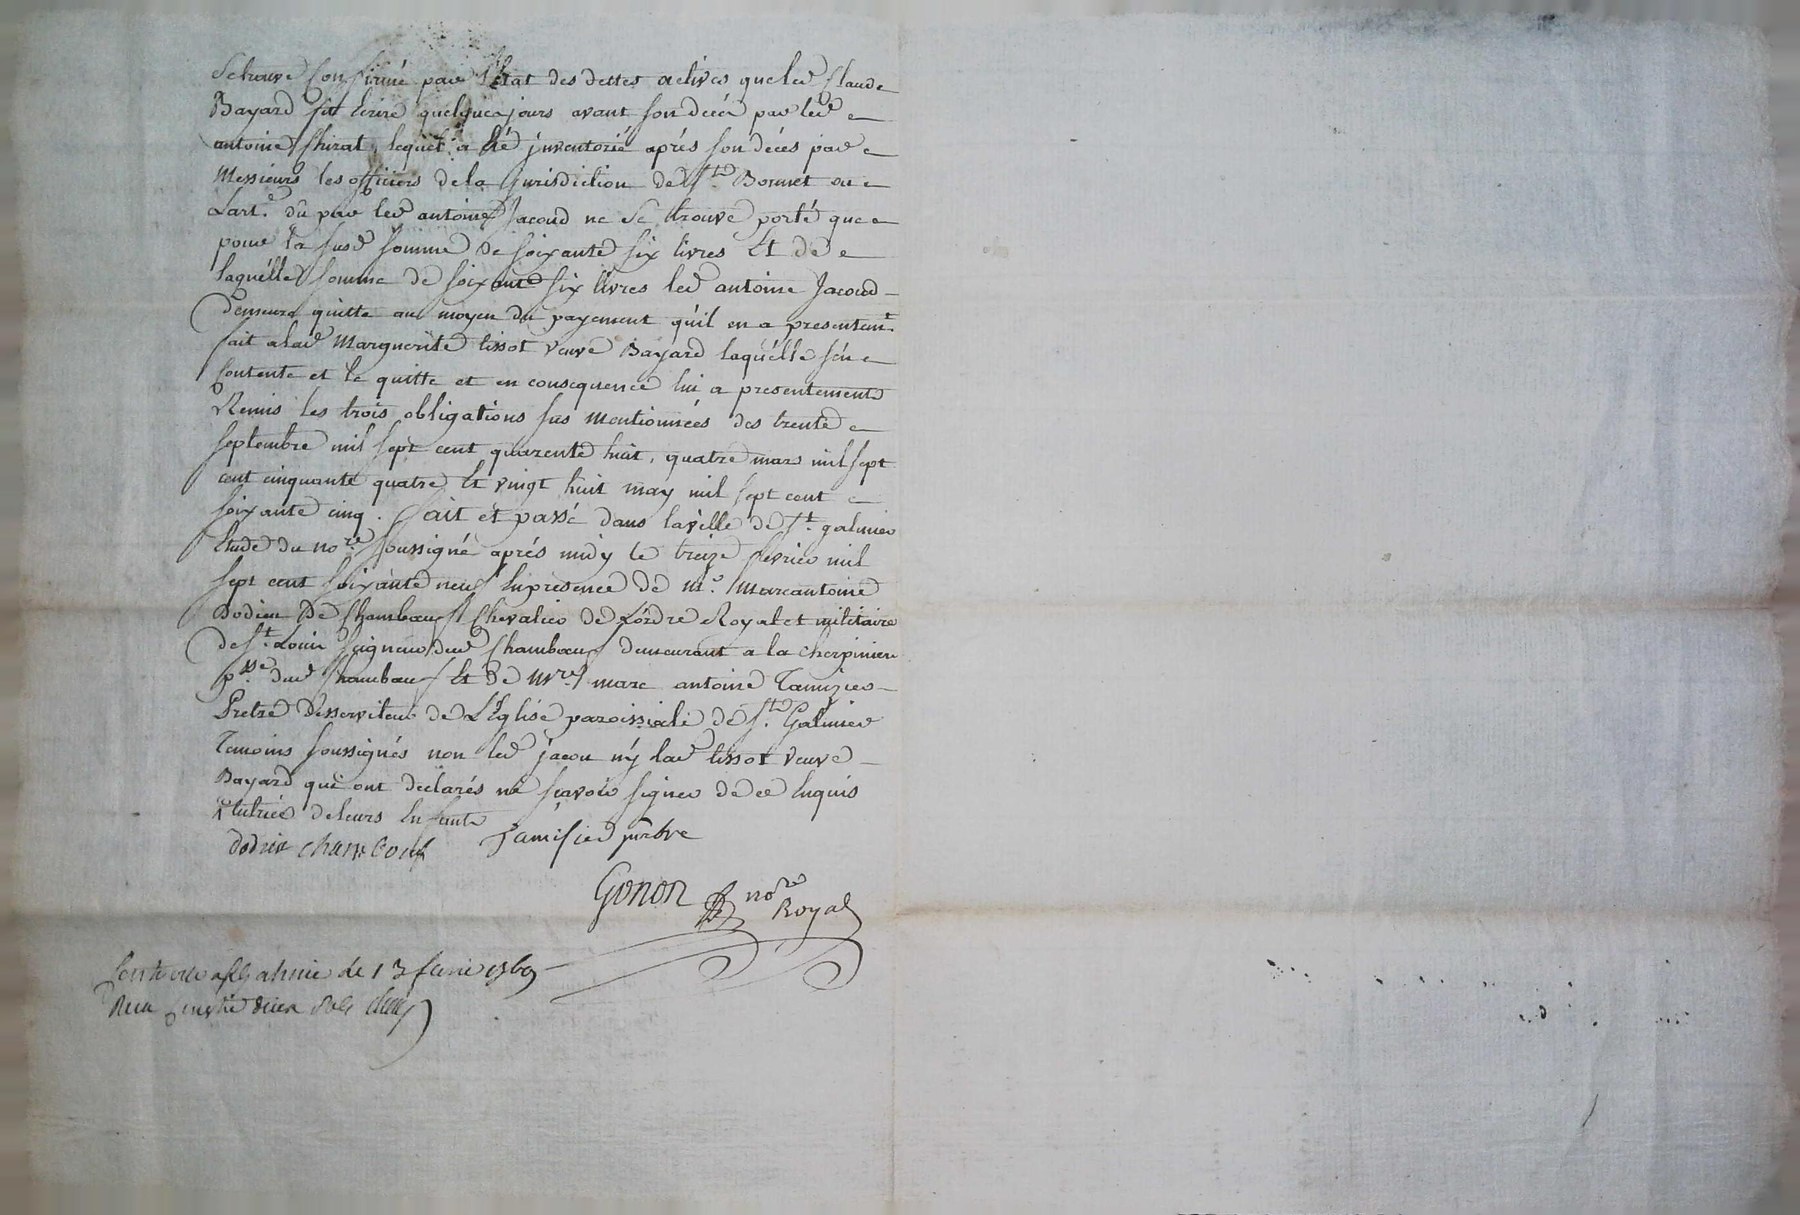 Se trouve Confirmé par l'Etat des dettes actives que led Claude
Bayard fit Ecrire quelques jours avant son décés par led
antoine Chirat, lequel a été jnventorié aprés son décés par
Messieurs les officiers de la Jurisdiction de St Bonnet ou
L'arte dû par led antoine Jacoud ne Se trouve porté que
pour la susd somme de soixante six livres Et de
laquélle somme de soixante six livres led antoine Jacoud
demeure quitte au moyen du payement qu'il en a presentemt
fait a lad Marguerite tissot veuve Bayard laquélle s'en
Contente et le quitte et en consequence lui a presentement
Remis les trois obligations sus mentionnées des trente
septembre mil sept cent quarente huit, quatre mars mil sept
cent cinquante quatre Et vingt huit may mil sept cent
soixante cinq. fait et passé dans la ville de St. galmier
Etude du nore soussigné aprés midy le treize fevrier mil
sept cent soixante neuf En presence de Me. Marcantoine
Dodieu De Chambœuf Chevalier de L'órdre Royal et militaire
de St. Louis seigneur dud Chambœuf demeurant a la cherpiniere
psse. dud Chambœuf Et de Mre marc antoine Tamizier
Pretre Desserviteur de L'Eglise paroissiale de St. Galmier
Temoins soussignés non led jacou n'y lad tissot veuve
Bayard qui ont déclarés ne sçavoir signer de ce Enquis
deleurs Enfants
dodieu chambœuf Tamisier prêbre
Gonon nore
Royal
Controllé a St galmier le 13 1769
Recu